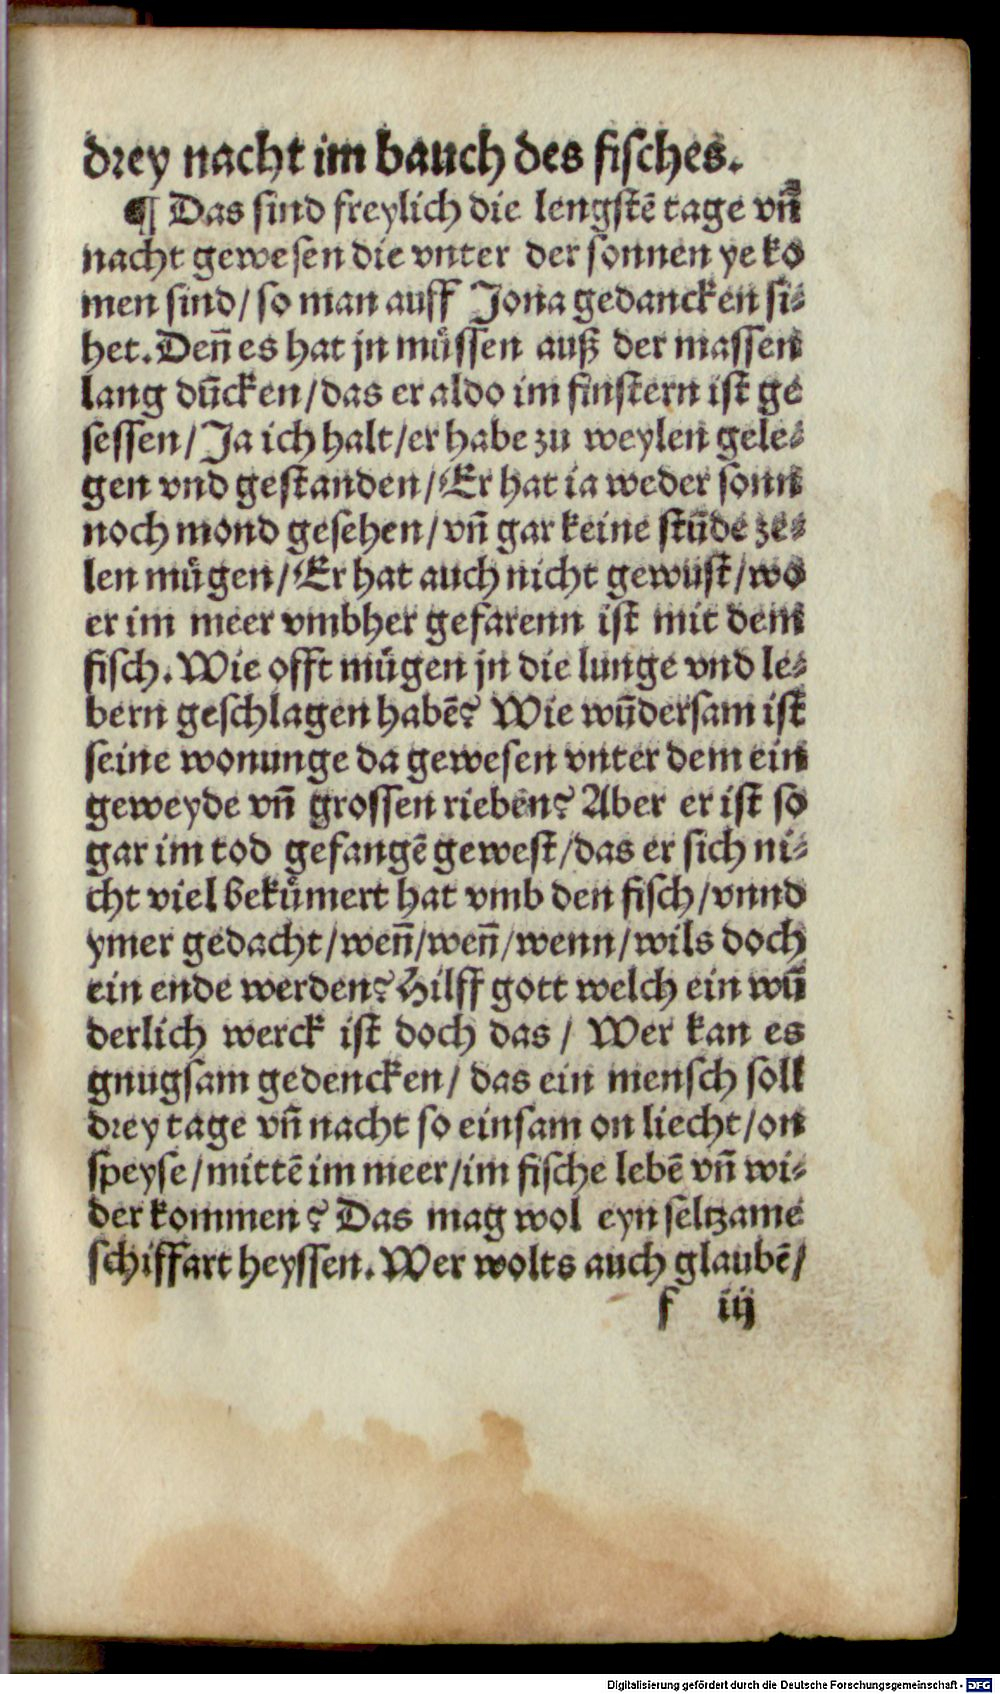 drey nacht im bauch des fisches.
¶ Das sind freylich die lengstē tage vn̄
nacht gewesen die vnter der sonnen ye ko
men sind/ so man auff Jona gedancken si⸗
het. Den̄ es hat jn müssen auß der massen
lang dūcken/das er aldo im finstern ist ge
sessen/Ja ich halt/er habe zu weylen gele⸗
gen vnd gestanden/Er hat ia weder sonn
noch mond gesehen/vn̄ gar keine stūde ze⸗
len mügen/Er hat auch nicht gewust/wo
er im meer vmbher gefarenn ist mit dem
fisch. Wie offt mügen jn die lunge vnd le⸗
bern geschlagen habē? Wie wūdersam ist
seine wonunge da gewesen vnter dem ein
geweyde vn̄ grossen rieben? Aber er ist so
gar im tod gefangē gewest/das er sich ni⸗
cht viel bekümert hat vmb den fisch/vnnd
ymer gedacht/wen̄/wen̄/wenn/wils doch
ein ende werden? Hilff gott welch ein wū
derlich werck ist doch das/ Wer kan es
gnugsam gedencken/ das ein mensch soll
drey tage vn̄ nacht so einsam on liecht/on
speyse/mittē im meer/im fische lebē vn̄ wi⸗
der kommen? Das mag wol eyn seltzame
schiffart heyssen. Wer wolts auch glaubē/
f iij
Digitalisierung gefördert durch die Deutsche Forschungsgemeinschaft - DFG